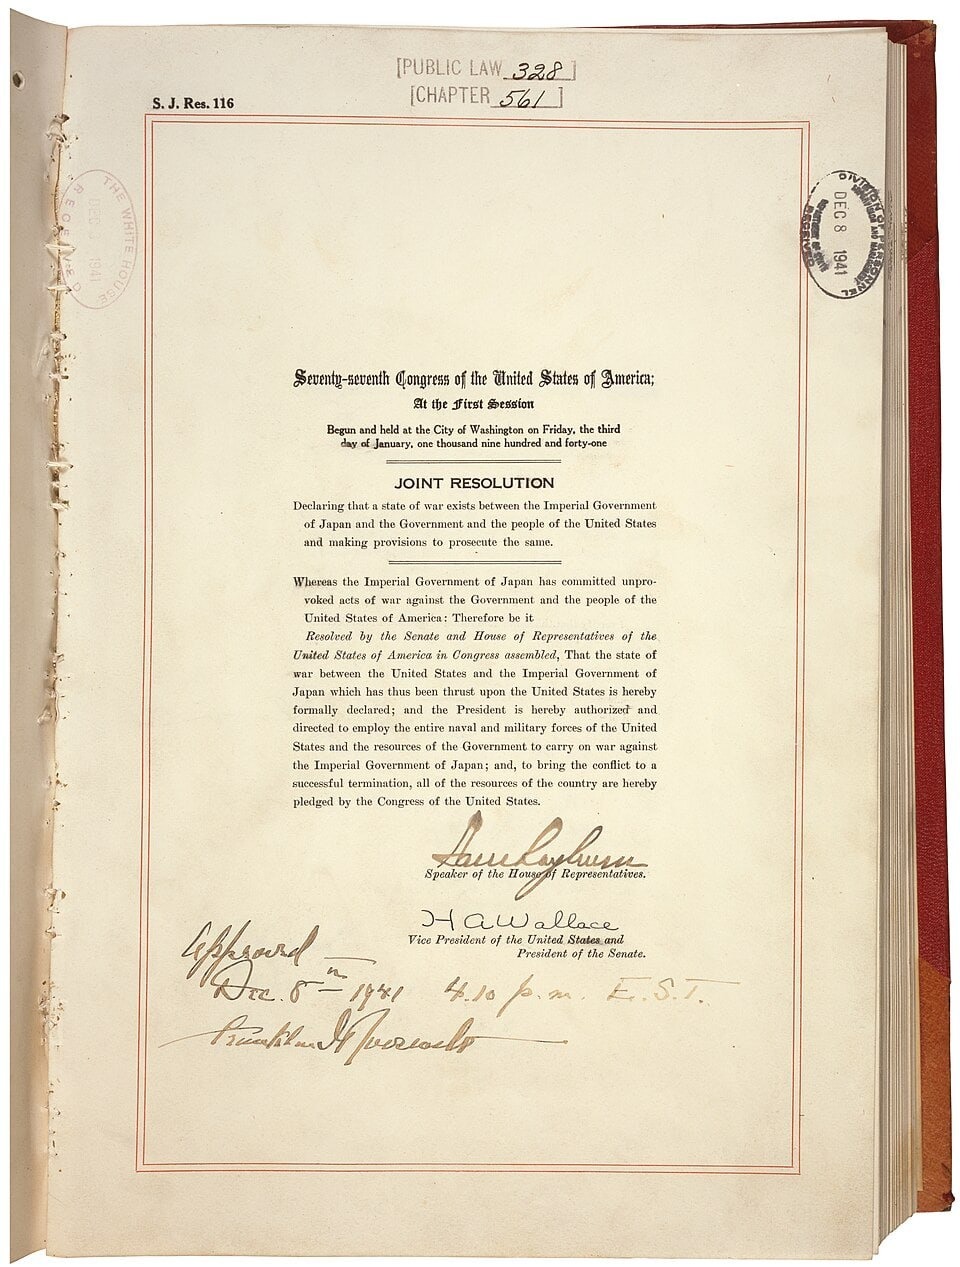 [PUBLIC LAW 328]
[CHAPTER 561]
S. J. Res. 116
THE WHITE HOUSE
1941
RECEIVED
DIVISION OF PERSONNEL
DEC 8 1941
RECEIVED
Seventy-seventh Congress of the United States of America;
At the First Session
Begun and held at the City of Washington on Friday, the third
day of January, one thousand nine hundred and forty-one
JOINT RESOLUTION
Declaring that a state of war exists between the Imperial Government
of Japan and the Government and the people of the United States
and making provisions to prosecute the same.
Whereas the Imperial Government of Japan has committed unpro-
voked acts of war against the Government and the people of the
United States of America: Therefore be it
Resolved by the Senate and House of Representatives of the
United States of America in Congress assembled, That the state of
war between the United States and the Imperial Government of
Japan which has thus been thrust upon the United States is hereby
formally declared; and the President is hereby authorized and
directed to employ the entire naval and military forces of the United
States and the resources of the Government to carry on war against
the Imperial Government of Japan; and, to bring the conflict to a
successful termination, all of the resources of the country are hereby
pledged by the Congress of the United States.
Sam Rayburn
Speaker of the House of Representatives.
H A Wallace
Vice President of the United States and
President of the Senate.
Approved
Dec. 8th 1941 4.10 p.m. E.S.T.
Franklin D Roosevelt